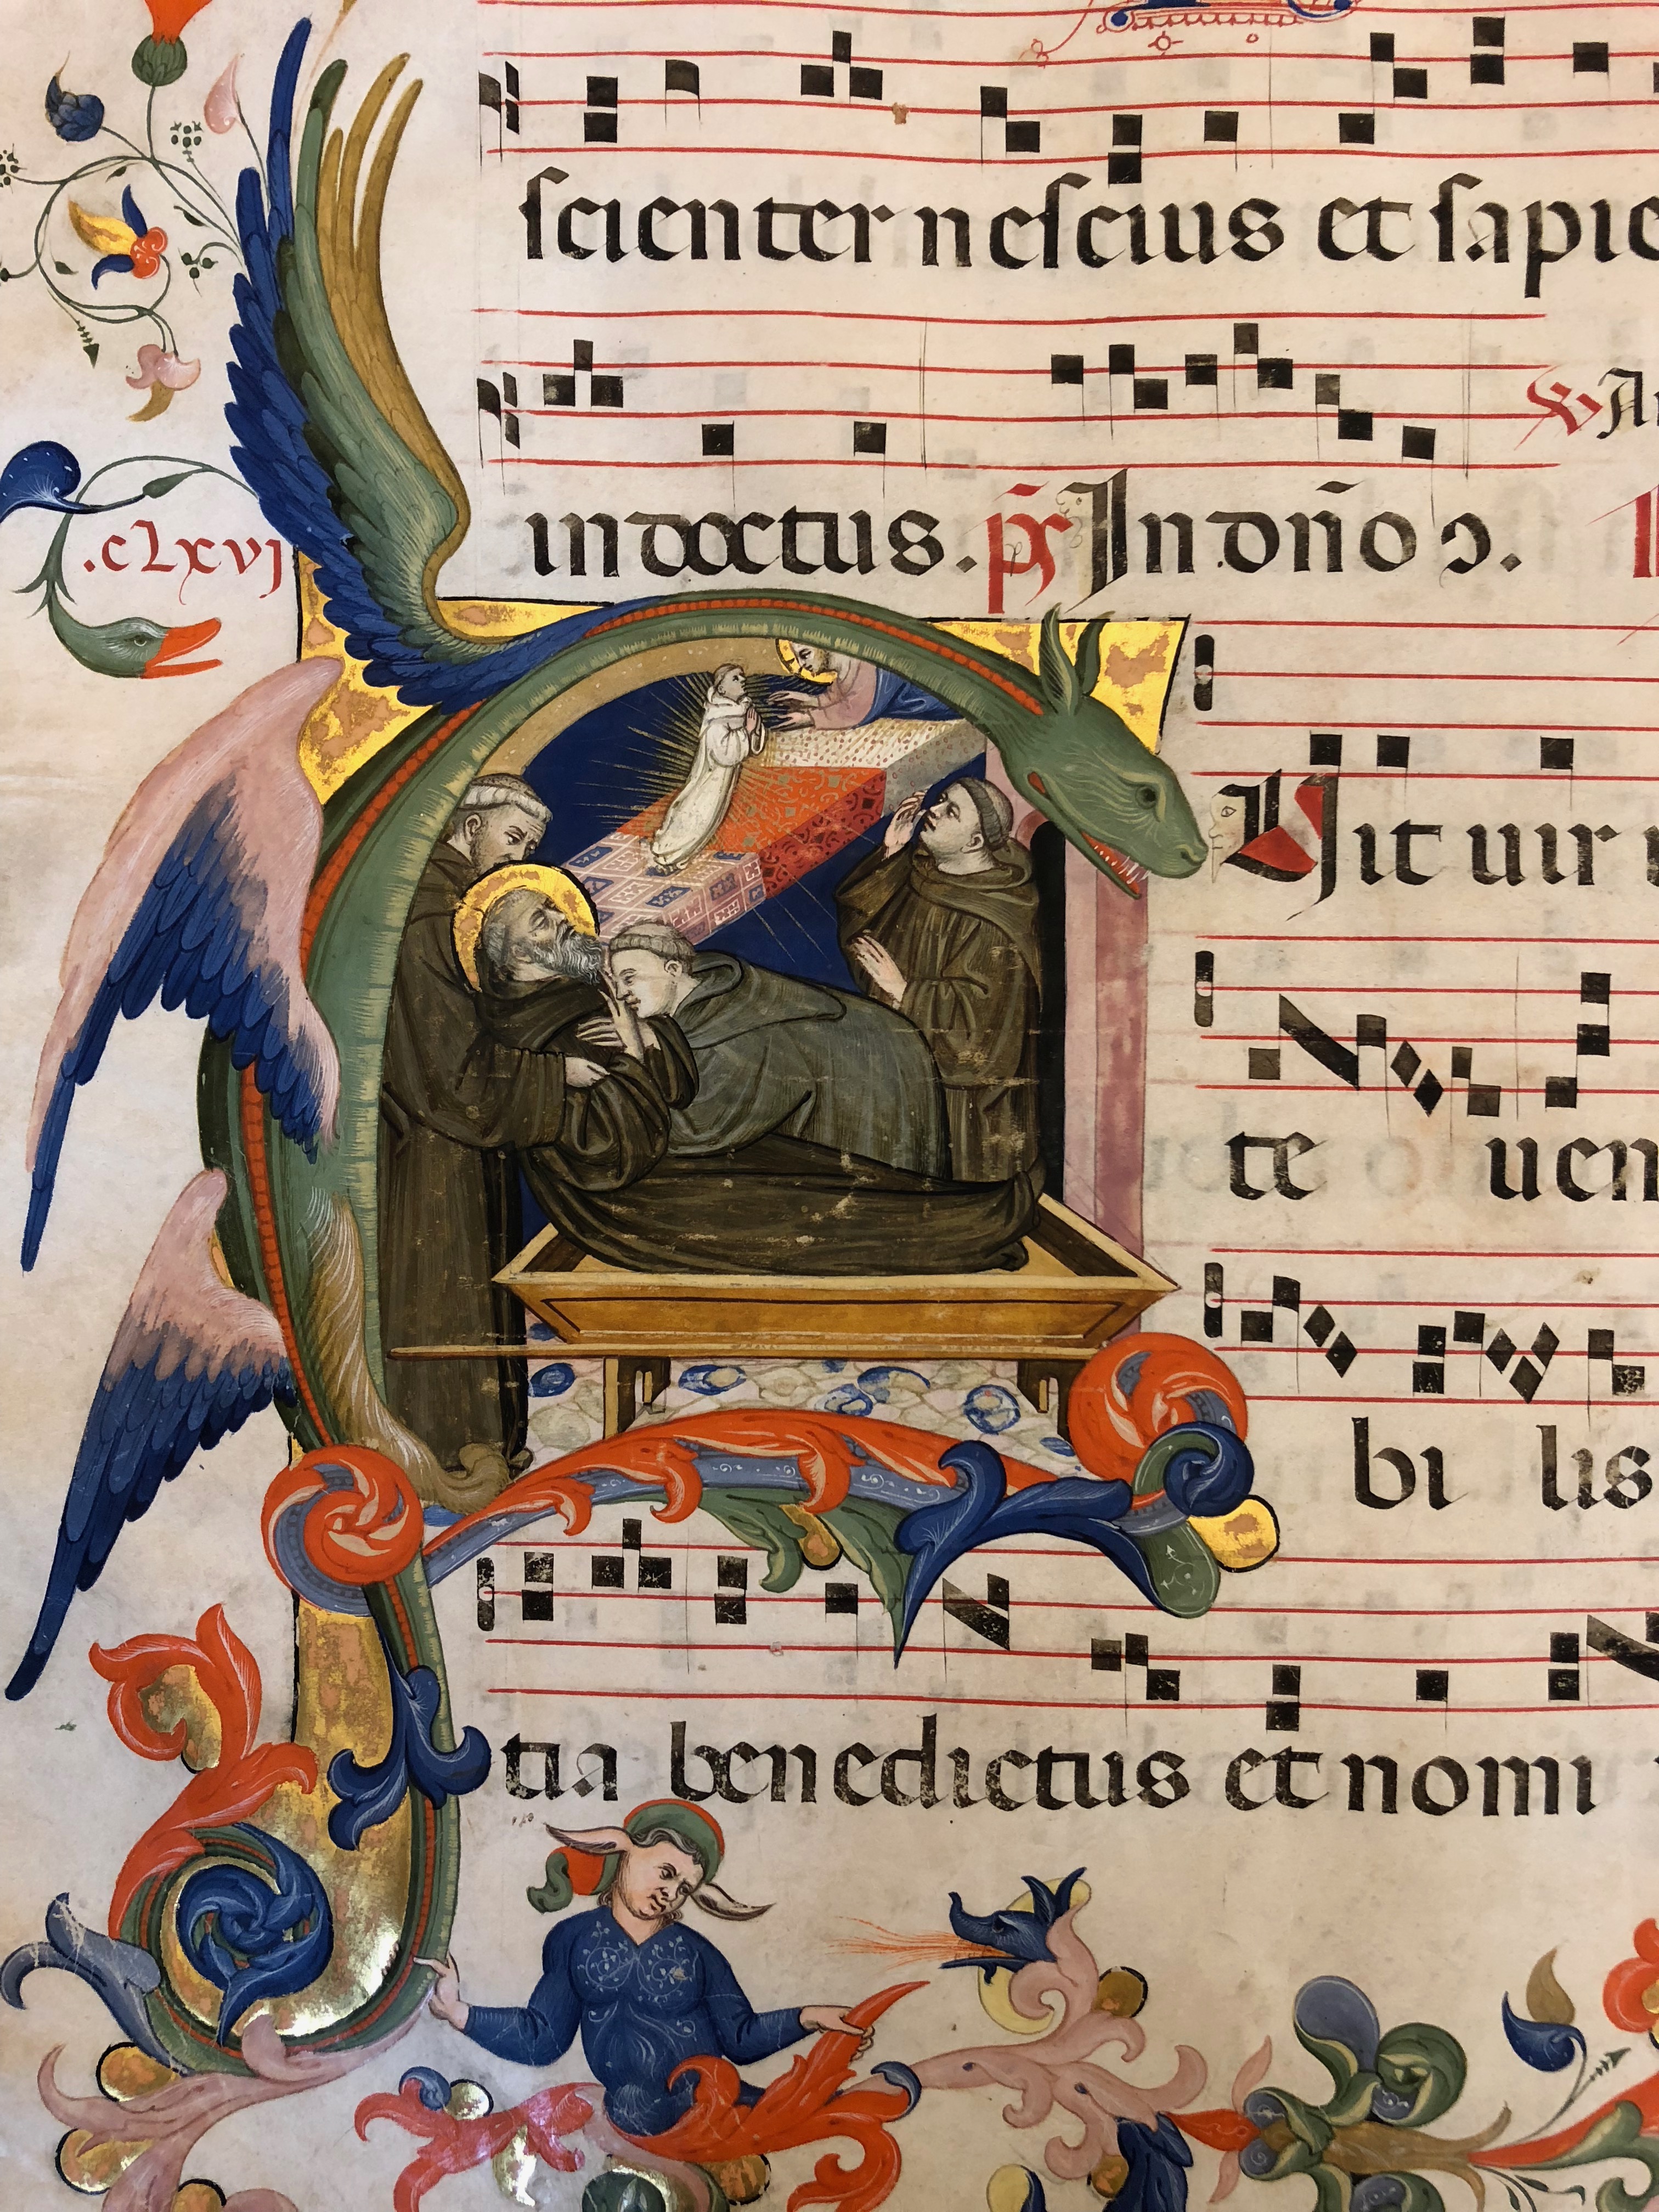 scienter nescius et sapie
indoctus. p̄s In dn̄o ↄ.
.clxvj
Uit uir
te uen
bi lis
tia benedictus et nomi